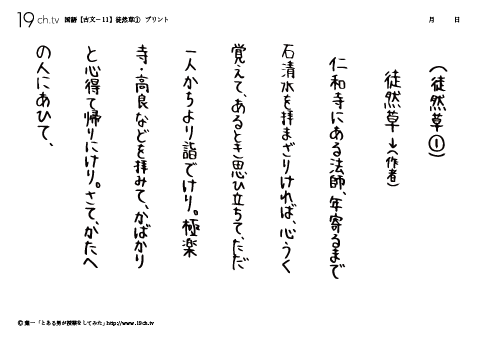 19ch.tv 国語【古文－11】徒然草① プリント
月 日
(徒然草①)
徒然草→(作者)
仁和寺にある法師、年寄るまで
石清水を拝まざりければ、心うく
覚えて、あるとき思ひ立ちて、ただ
一人かちより詣でけり。極楽
寺・高良などを拝みて、かばかり
と心得て帰りにけり。さて、かたへ
の人にあひて、
©葉一「とある男が授業をしてみた」http://www.19ch.tv